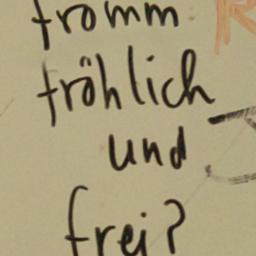 fromm
fröhlich
und
frei?